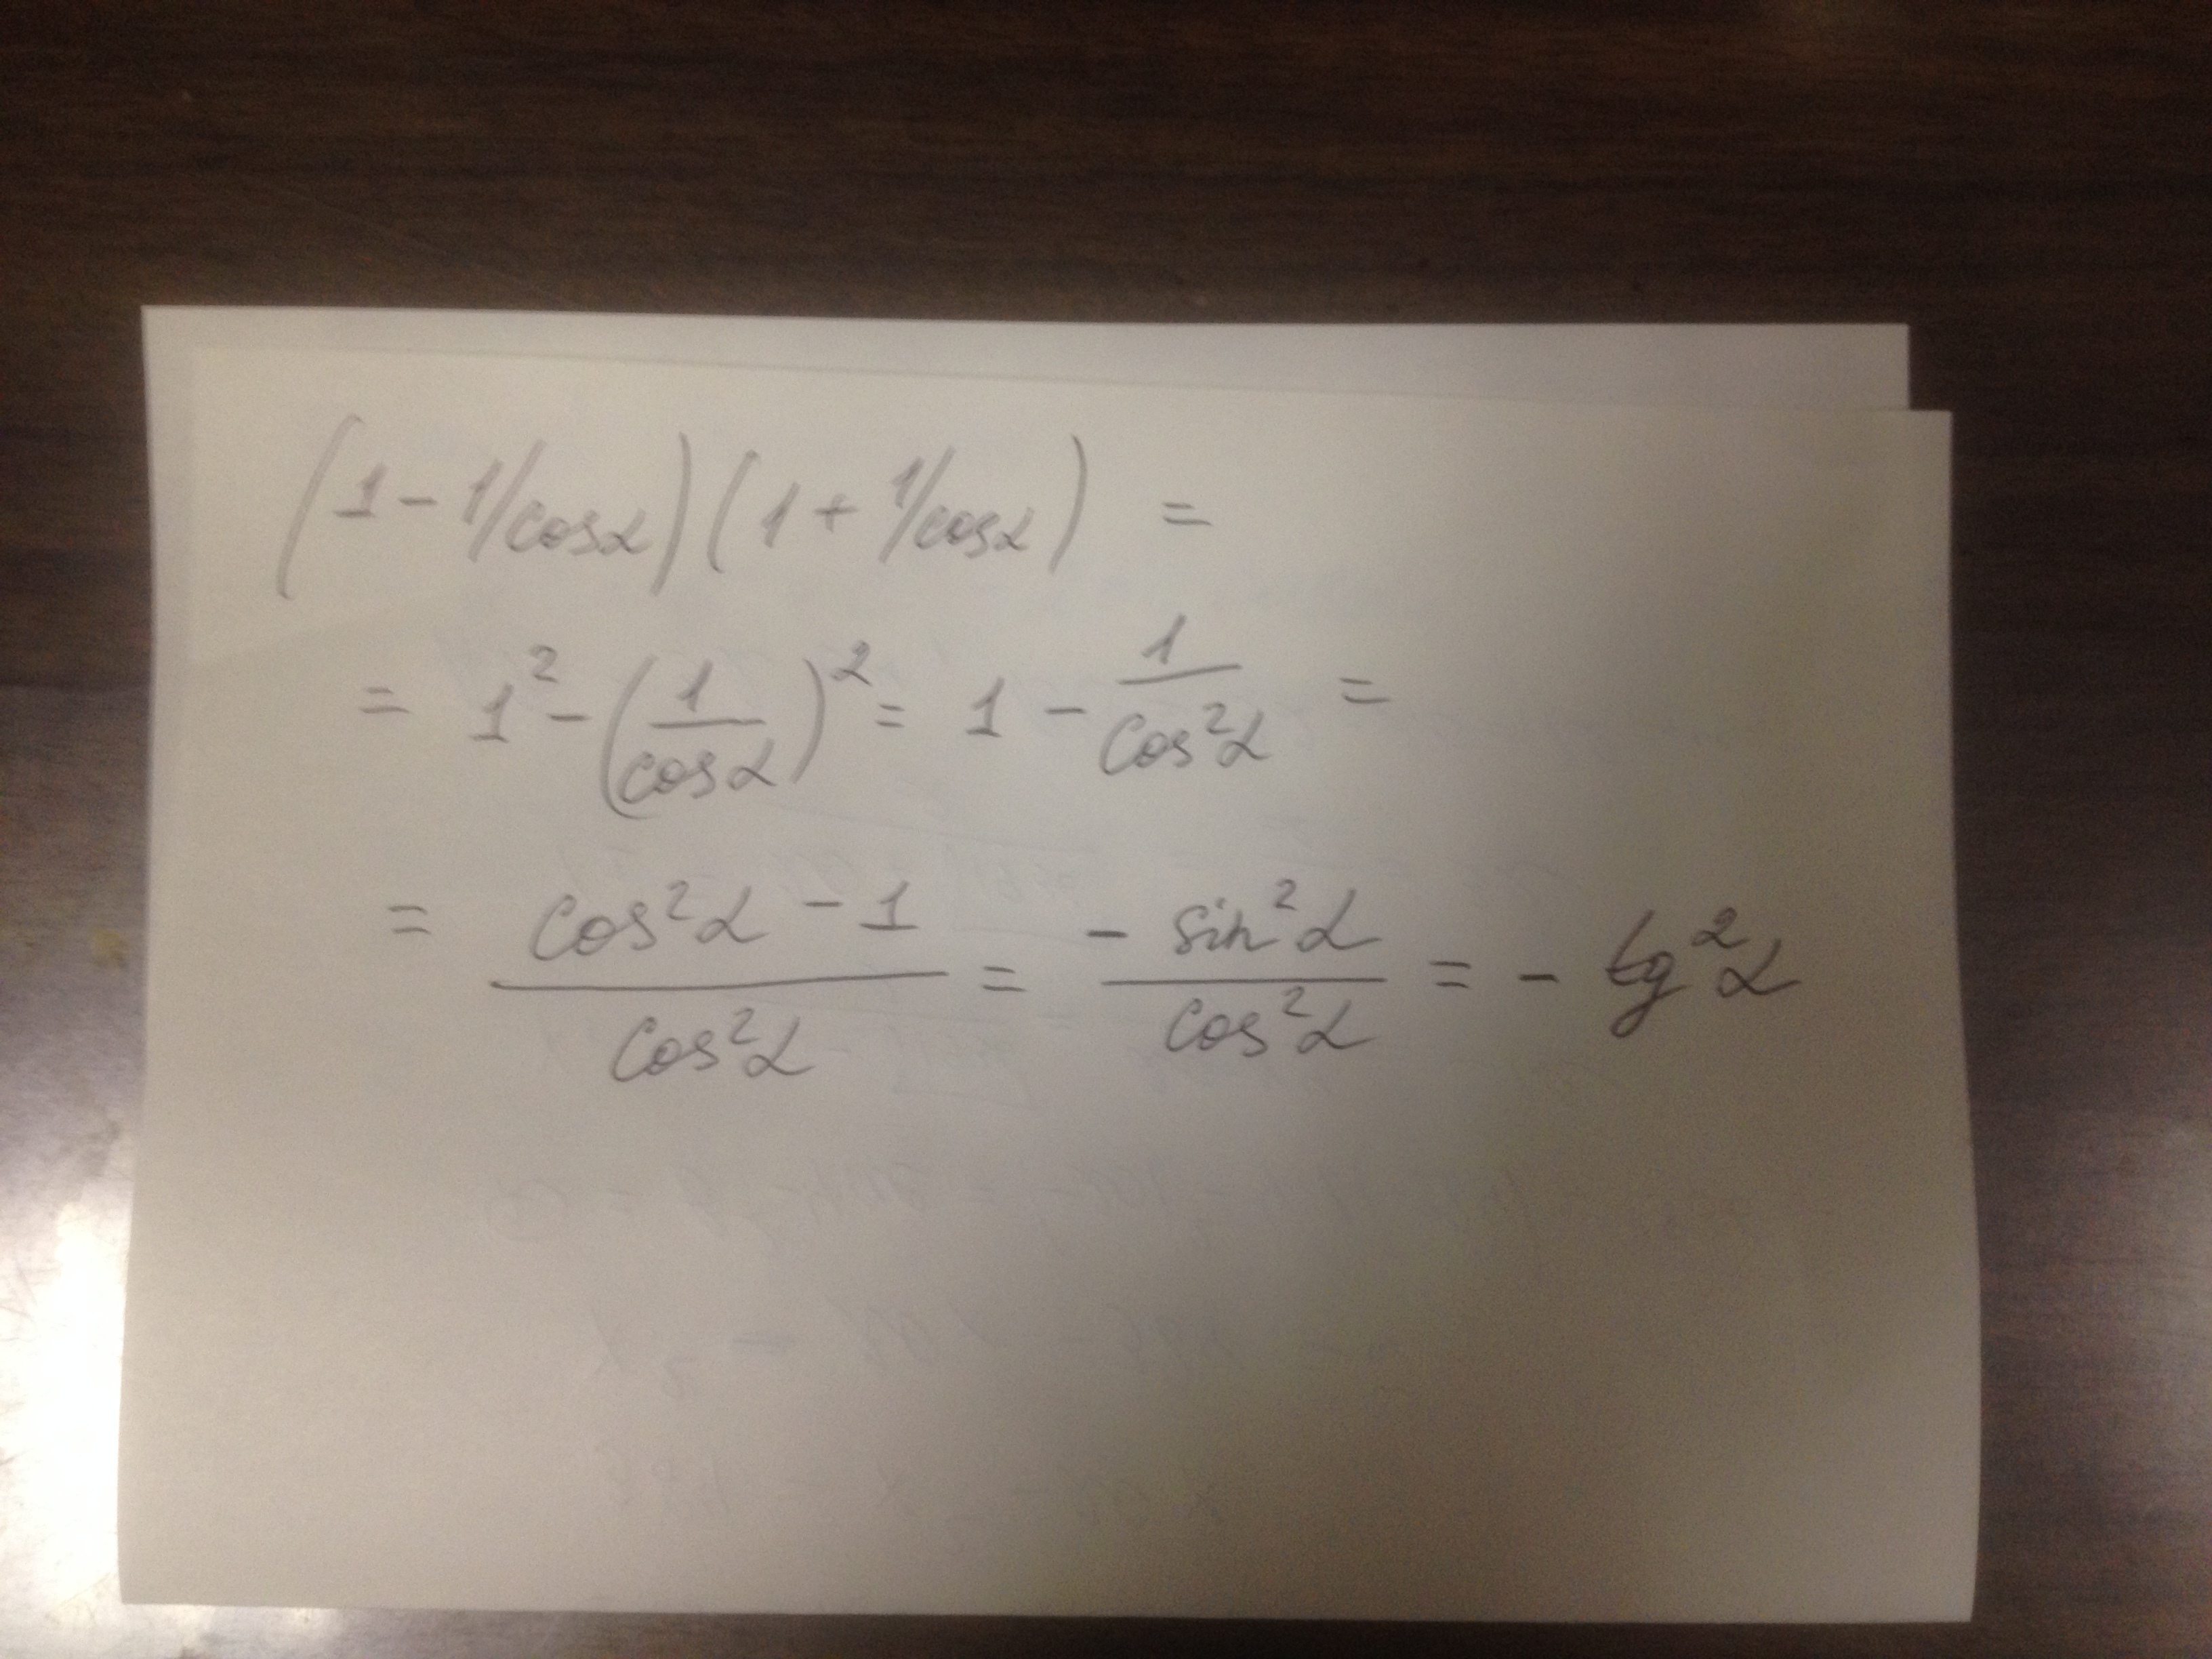 (1 - 1/cosα)(1 + 1/cosα) =
= 1² - (1/cosα)² = 1 - 1/cos²α =
= (cos²α - 1)/cos²α = - sin²α/cos²α = - tg²α